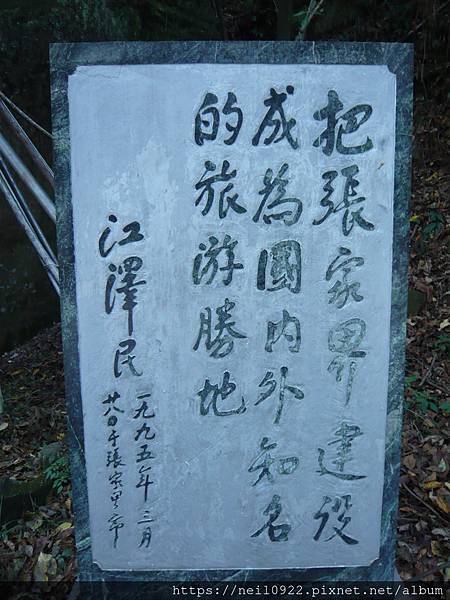 把張家界建设
成為國内外知名
的旅游勝地
江澤民
一九九五年三月
廿八日于張家界市
https://neil0922.pixnet.net/album